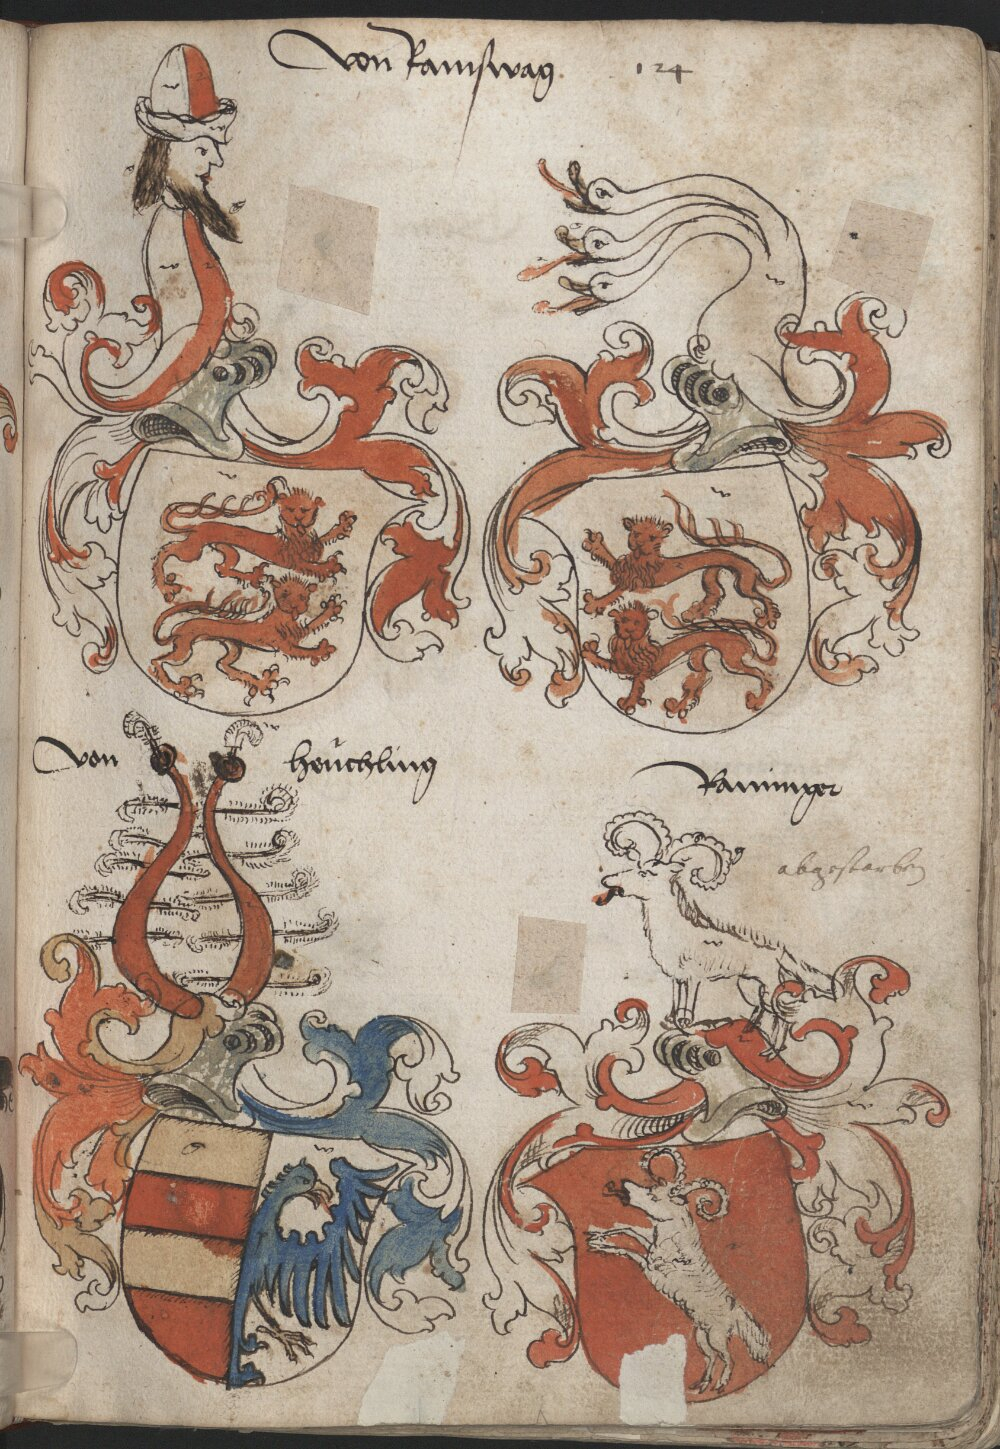 von Ramswag 124
von heüchling
Raminger
abgestorben